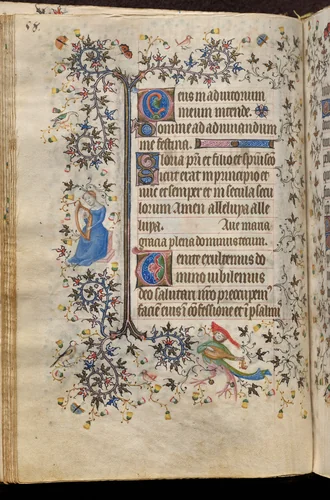 Deus in adiutorium
meum intende.
Domine ad adiuuandum
me festina.
Gloria pr̄i et filio et sp̄ui sc̄o
sicut erat in principio et
nūc et semper et in secula secu
lorum Amen alleluya alle
luya. Aue maria
gracia plena dominus tecum.
Uenite exultemus do
mino iubilemus
deo salutari nr̄o preocupem᷒
faciē eius ī cōfessione et ī psalmi